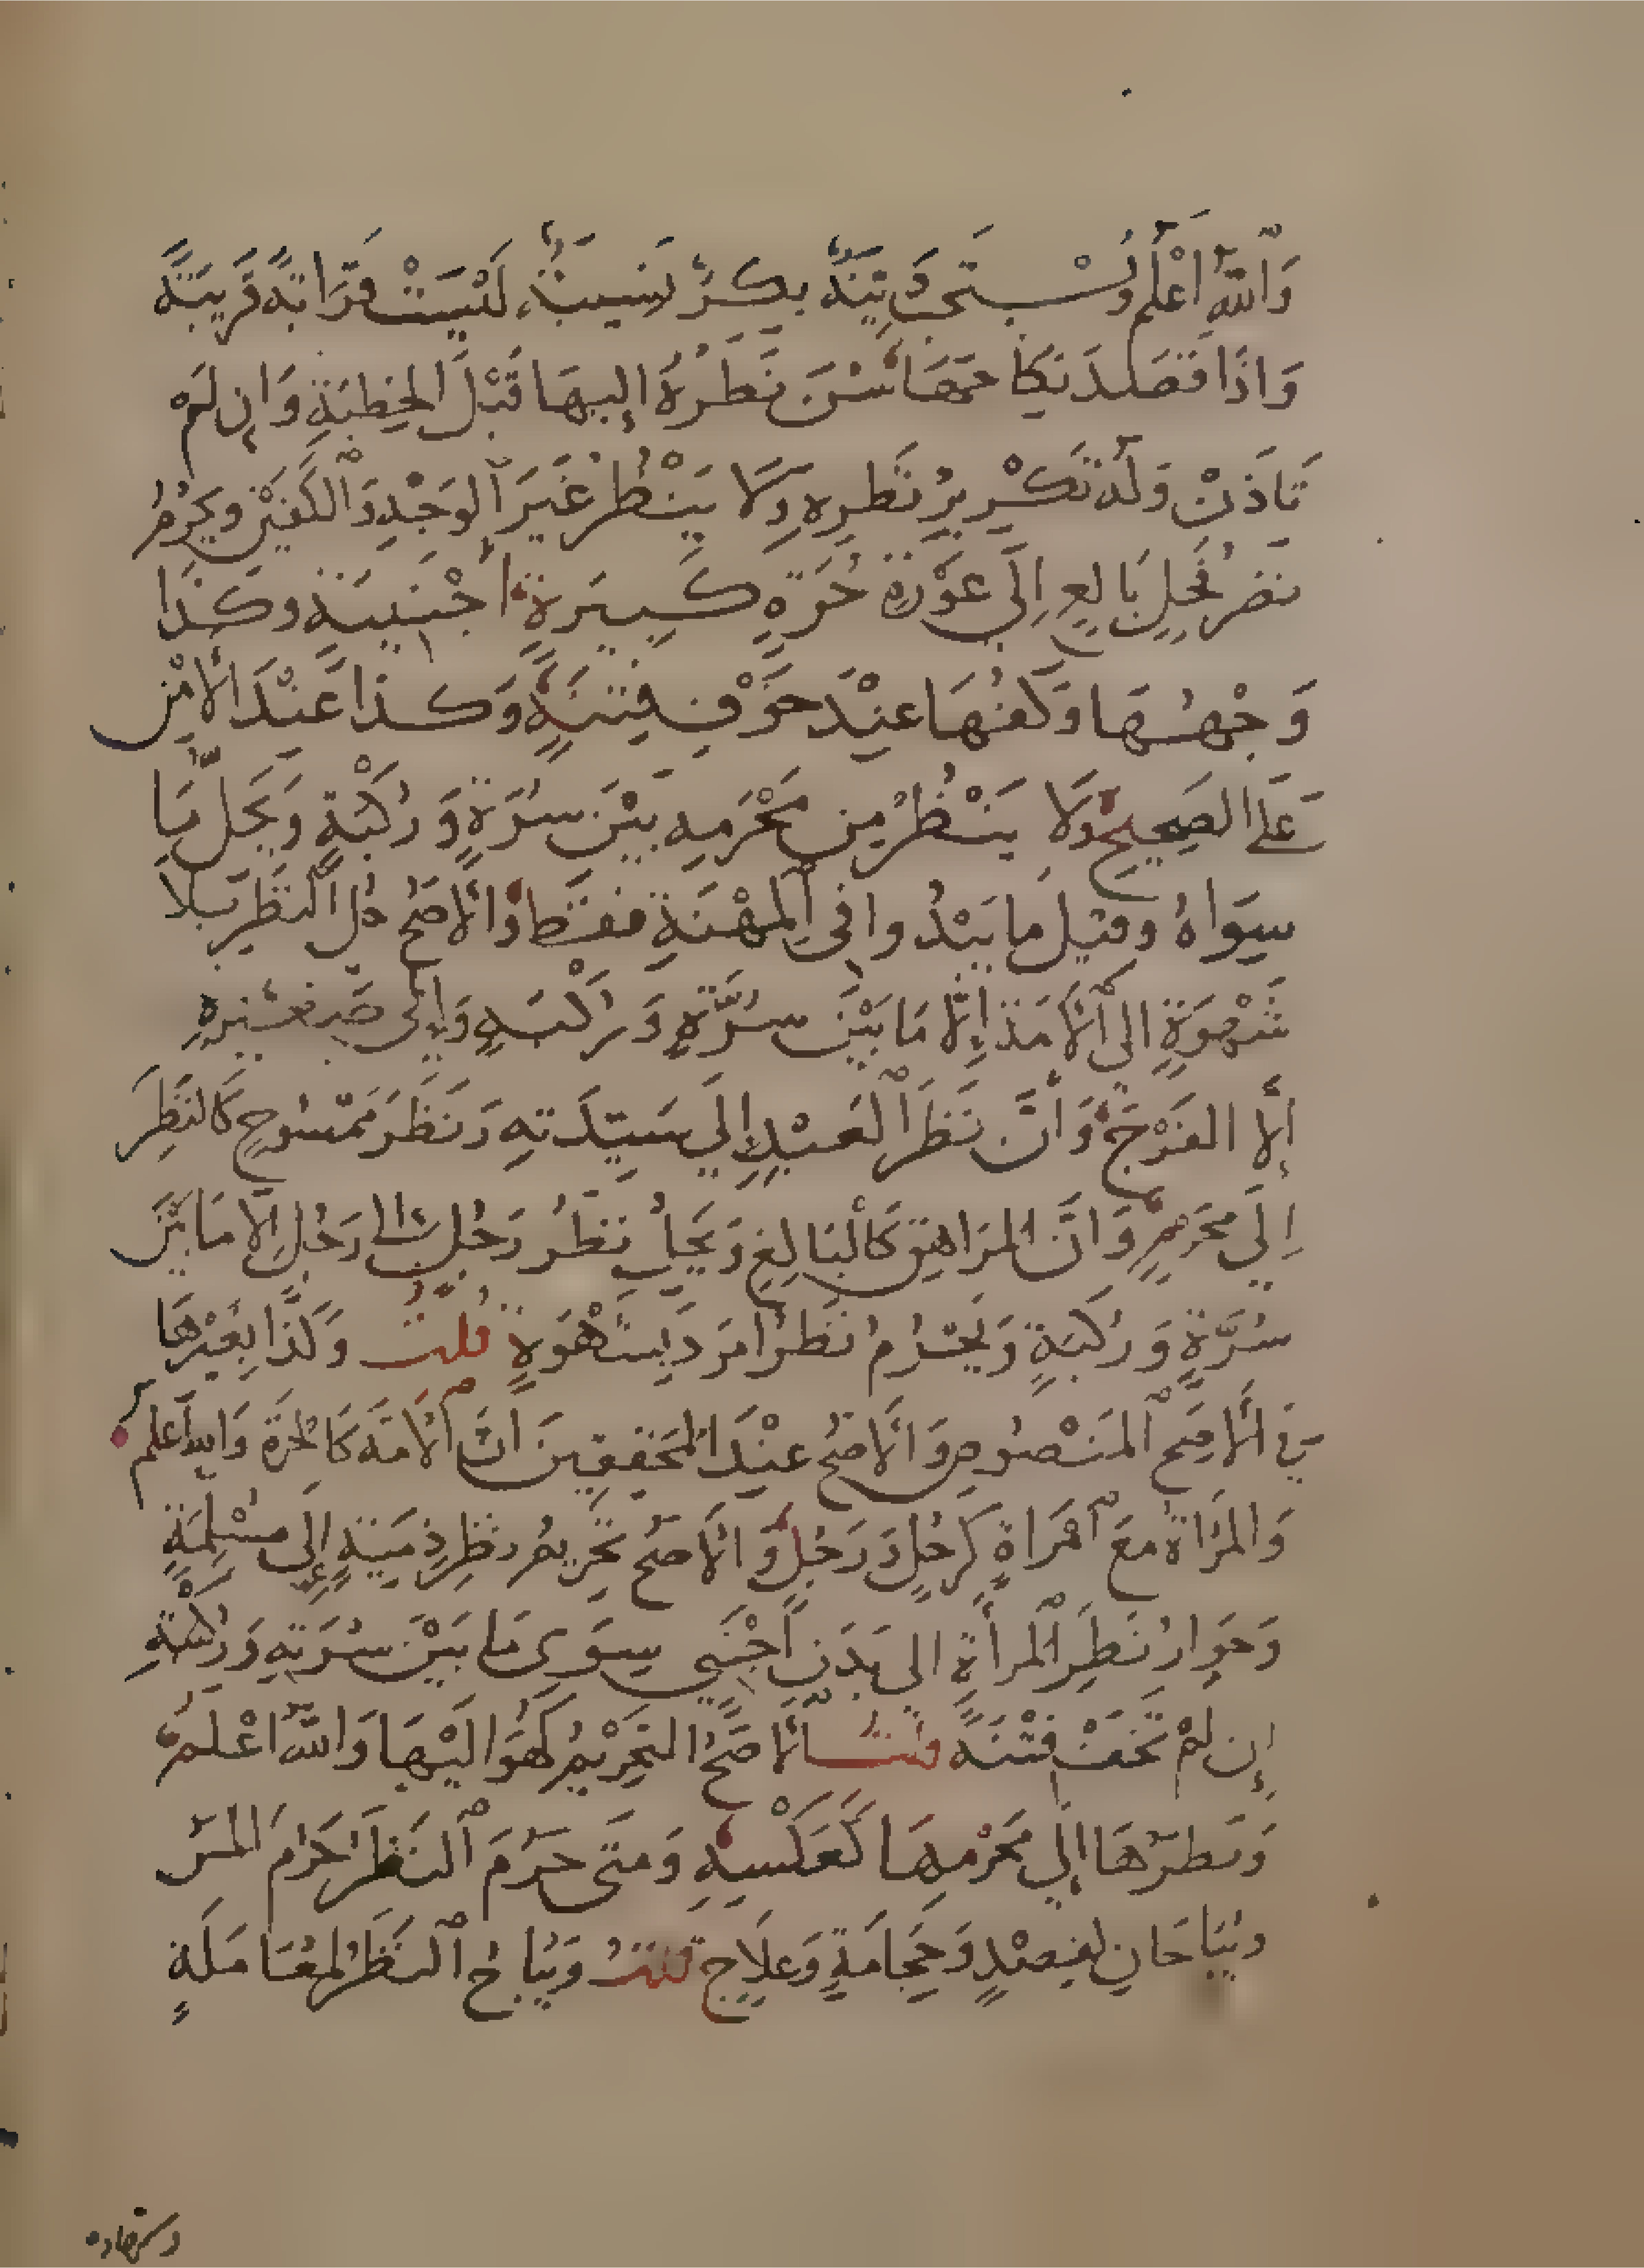 وَاللَّهُ أَعْلَمُ وَيُسْتَحَبُّ دَيِّنَةٌ بِكْرٌ نَسِيبَةٌ لَيْسَتْ قَرَابَةً قَرِيبَةً
وَإِذَا قَصَدَ نِكَاحَهَا سُنَّ نَظَرُهُ إِلَيْهَا قَبْلَ الْخِطْبَةِ وَإِن لَمْ
تَأْذَنْ وَلَهُ تَكْرِيرُ نَظَرِهِ وَلَا يَنْظُرُ غَيْرَ الْوَجْهِ وَالْكَفَّيْنِ وَيَحْرُمُ
نَظَرُ فَحْلٍ بَالِغٍ إِلَى عَوْرَةِ حُرَّةٍ كَبِيرَةٍ أَجْنَبِيَّةٍ وَكَذَا
وَجْهُهَا وَكَفُّهَا عِنْدَ خَوْفِ فِتْنَةٍ وَكَذَا عِنْدَ الْأَمْنِ
عَلَى الصَّحِيحِ وَلَا يَنْظُرُ مِن مَحْرَمِهِ بَيْنَ سُرَّةٍ وَرُكْبَةٍ وَيَحِلُّ مَا
سِوَاهُ وَقِيلَ مَا يَبْدُوا فِي الْمِهْنَةِ فَقَطْ وَالْأَصَحُّ حِلُّ النَّظَرِ بِلَا
شَهْوَةٍ إِلَى الْأَمَةِ إِلَّا مَا بَيْنَ سُرَّةٍ وَرُكْبَةٍ وَإِلَى صَغِيرَةٍ
إِلَّا الْفَرْجَ وَأَنَّ نَظَرَ الْعَبْدِ إِلَى سَيِّدَتِهِ وَنَظَرَ مَمْسُوحٍ كَالنَّظَرِ
إِلَى مَحْرَمٍ وَأَنَّ الْمُرَاهِقَ كَالْبَالِغِ وَيَحِلُّ نَظَرُ رَجُلٍ إِلَى رَجُلٍ إِلَّا مَا بَيْنَ
سُرَّةٍ وَرُكْبَةٍ وَيَحْرُمُ نَظَرُ أَمْرَدَ بِشَهْوَةٍ قُلْتُ وَكَذَا بِغَيْرِهَا
فِي الْأَصَحِّ الْمَنْصُوصِ وَالْأَصَحُّ عِنْدَ الْمُحَقِّقِينَ أَنَّ الْأَمَةَ كَالْحُرَّةِ وَاللَّهُ أَعْلَمُ
وَالْمَرْأَةُ مَعَ امْرَأَةٍ كَرَجُلٍ وَرَجُلٍ وَالْأَصَحُّ تَحْرِيمُ نَظَرِ ذِمِّيَّةٍ إِلَى مُسْلِمَةٍ
وَجَوَازُ نَظَرِ الْمَرْأَةِ إِلَى بَدَنِ أَجْنَبِيٍّ سِوَى مَا بَيْنَ سُرَّتِهِ وَرُكْبَتِهِ
إِن لَمْ تَخَفْ فِتْنَةً قُلْتُ الْأَصَحُّ التَّحْرِيمُ كَهُوَ إِلَيْهَا وَاللَّهُ أَعْلَمُ
وَنَظَرُهَا إِلَى مَحْرَمِهَا كَعَكْسِهِ وَمَتَى حَرُمَ النَّظَرُ حَرُمَ الْمَسُّ
وَيُبَاحَانِ لِفَصْدٍ وَحِجَامَةٍ وَعِلَاجٍ قُلْتُ وَيُبَاحُ النَّظَرُ لِمُعَامَلَةٍ
وشهاده